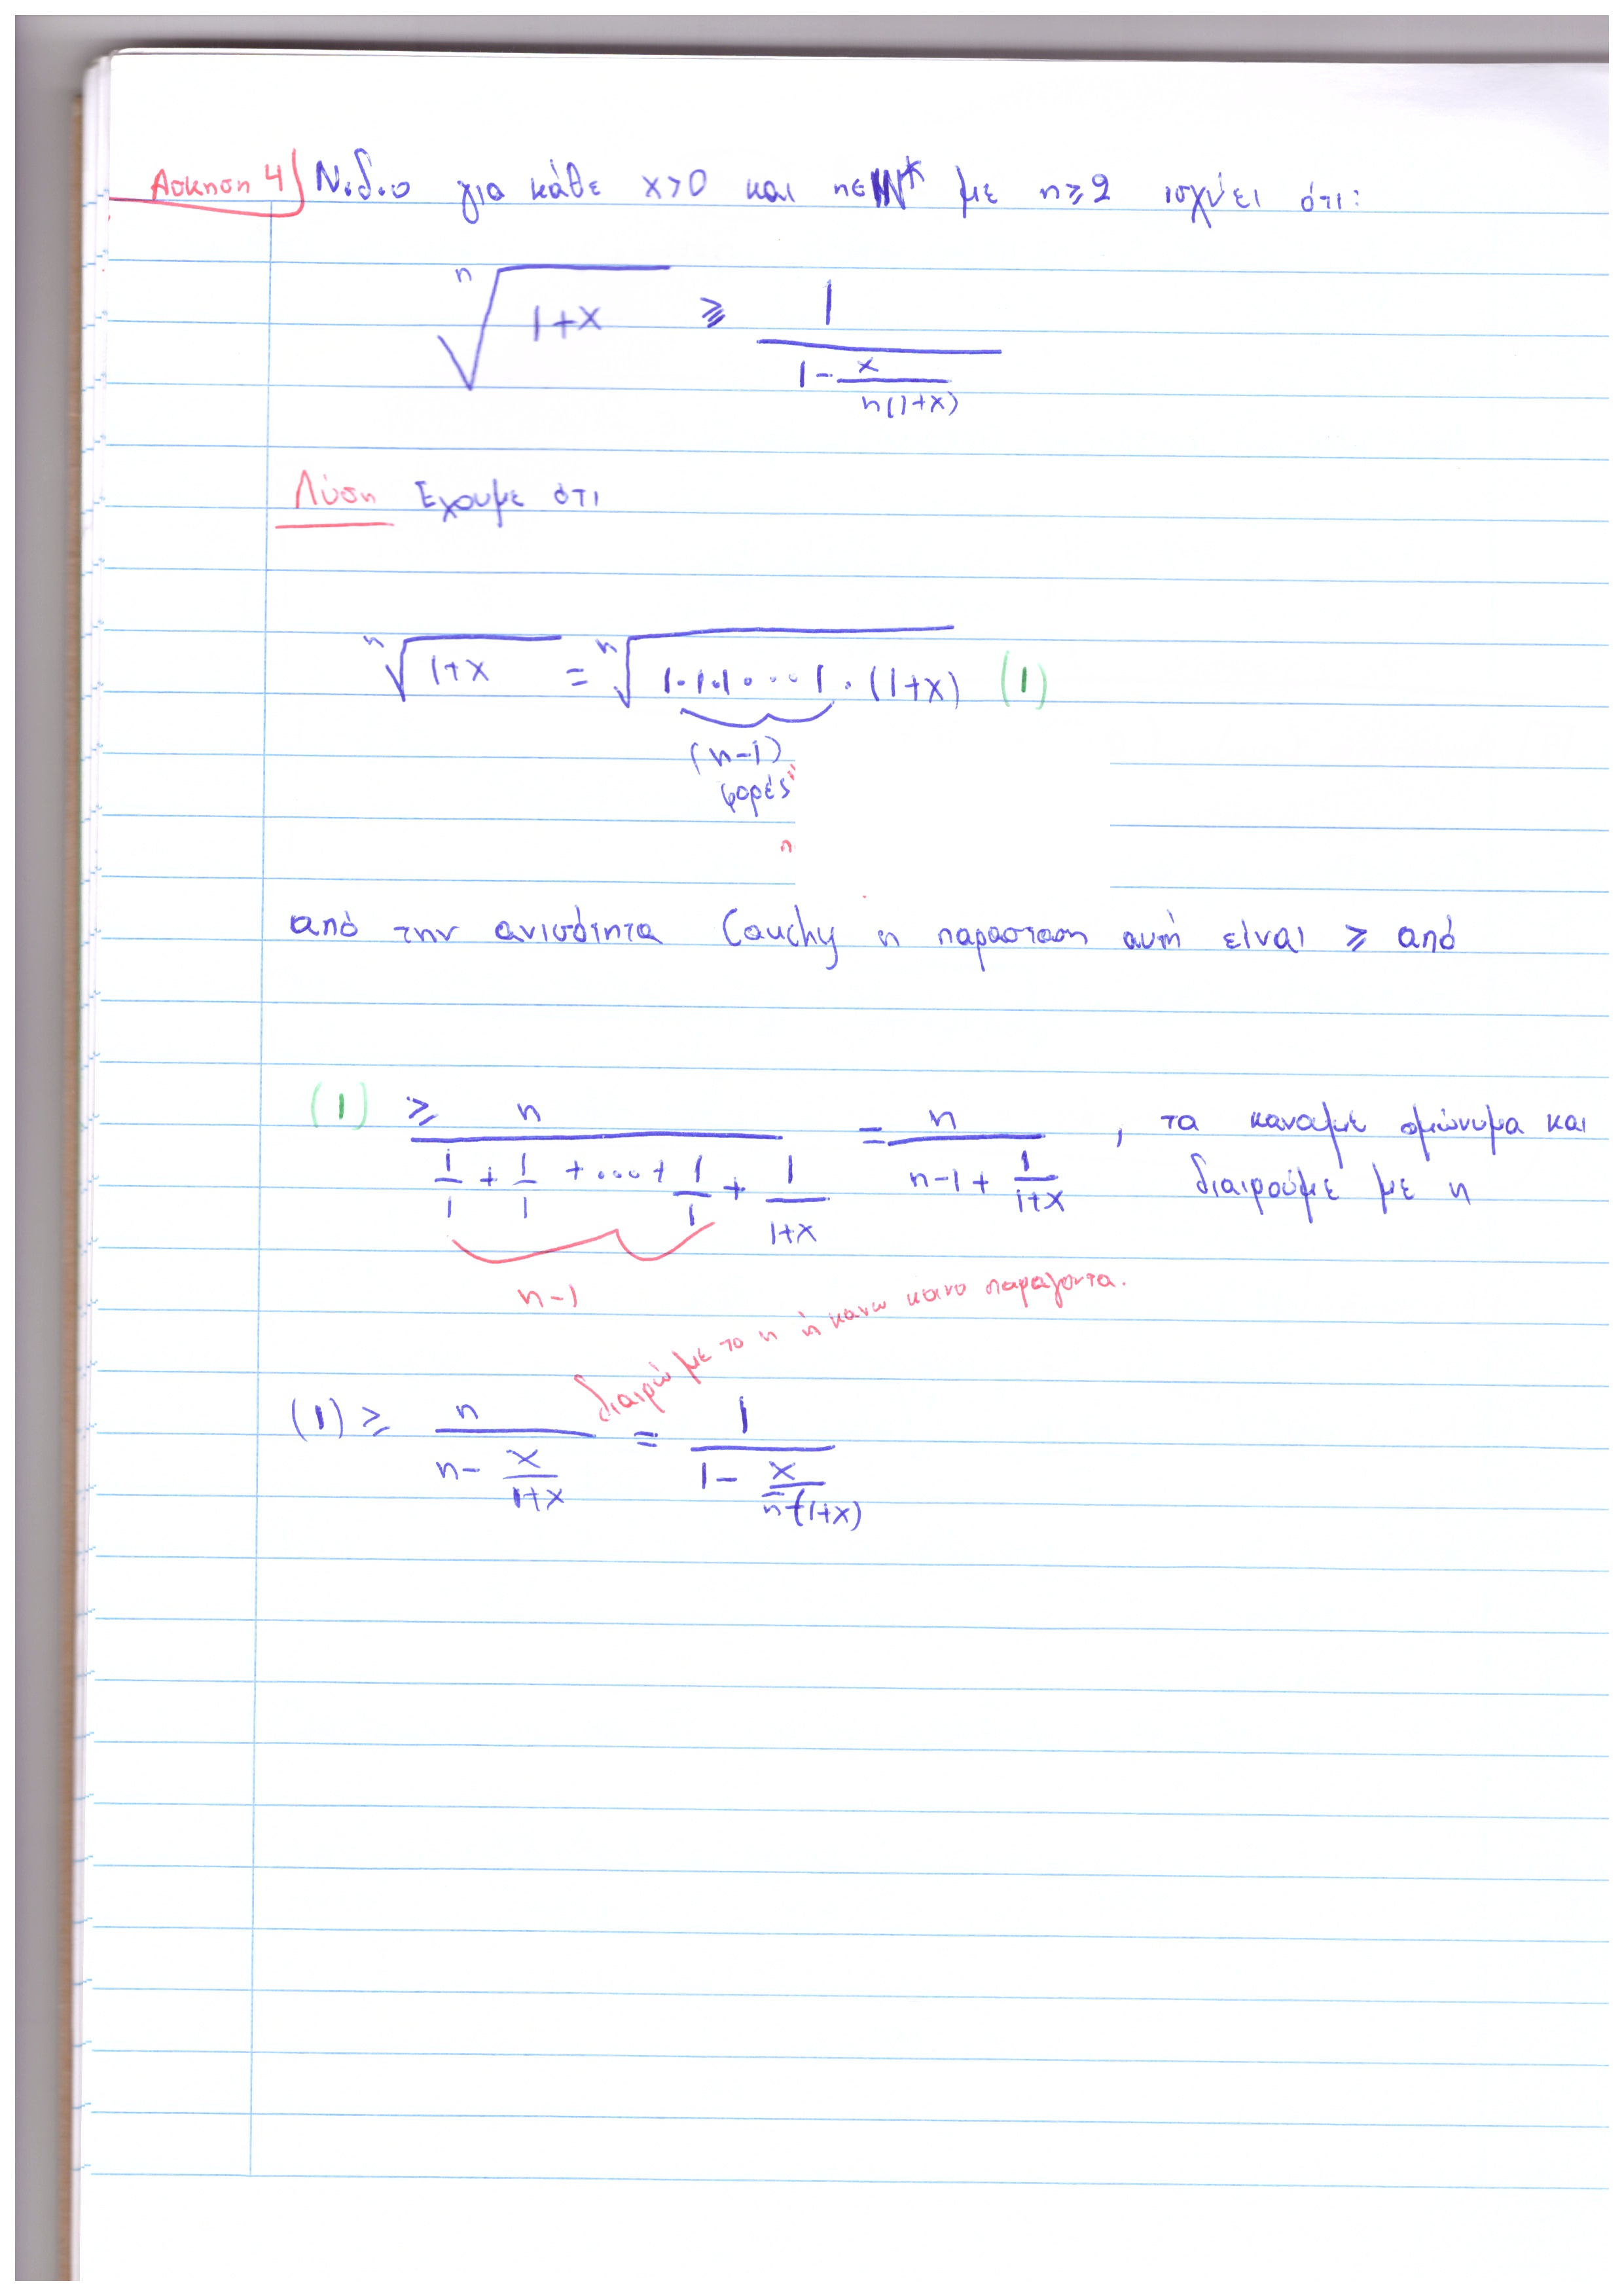 Άσκηση 4) Ν.δ.ο για κάθε x>0 και n∈ℕ* με n≥2 ισχύει ότι:
ⁿ√(1+x) ≥ 1/(1 - x/(n(1+x)))
Λύση Έχουμε ότι
ⁿ√(1+x) = ⁿ√(1·1·1·...1·(1+x)) (1)
(n-1)
φορές
n
από την ανισότητα Cauchy η παρασταση αυτή είναι ≥ από
(1) ≥ n/(1/1 + 1/1 + ... + 1/1 + 1/(1+x)) = n/(n-1 + 1/(1+x)) , τα καναμε ομώνυμα και
διαιρούμε με n
n-1
διαιρώ με το n ή κανω κοινο παραγοντα.
(1) ≥ n/(n - x/(1+x)) = 1/(1 - x/(n(1+x)))